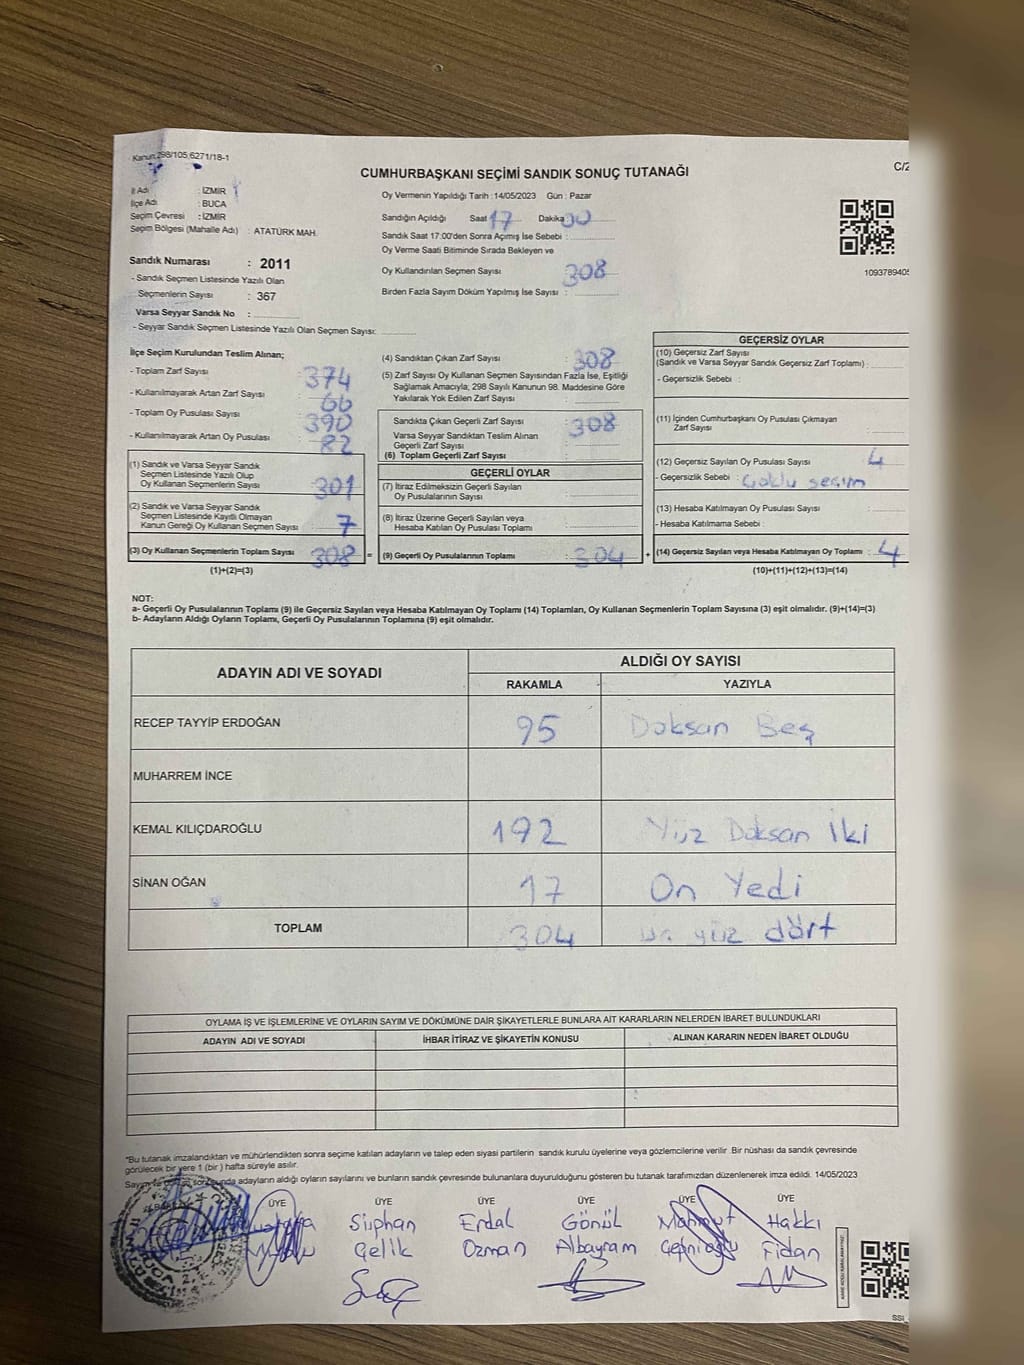 Kanun:298/105,6271/18-1
CUMHURBAŞKANI SEÇİMİ SANDIK SONUÇ TUTANAĞI
C/2
İl Adı : İZMİR
İlçe Adı : BUCA
Seçim Çevresi : İZMİR
Seçim Bölgesi (Mahalle Adı) : ATATÜRK MAH.
Sandık Numarası : 2011
- Sandık Seçmen Listesinde Yazılı Olan
Seçmenlerin Sayısı : 367
Varsa Seyyar Sandık No :
- Seyyar Sandık Seçmen Listesinde Yazılı Olan Seçmen Sayısı:
Oy Vermenin Yapıldığı Tarih : 14/05/2023 Gün : Pazar
Sandığın Açıldığı Saat 17 Dakika 00
Sandık Saat 17:00'den Sonra Açımış İse Sebebi :
Oy Verme Saati Bitiminde Sırada Bekleyen ve
Oy Kullandırılan Seçmen Sayısı : 308
Birden Fazla Sayım Döküm Yapılmış İse Sayısı :
1093789405
İlçe Seçim Kurulundan Teslim Alınan;
- Toplam Zarf Sayısı : 374
- Kullanılmayarak Artan Zarf Sayısı : 66
- Toplam Oy Pusulası Sayısı : 390
- Kullanılmayarak Artan Oy Pusulası : 82
(1) Sandık ve Varsa Seyyar Sandık
Seçmen Listesinde Yazılı Olup
Oy Kullanan Seçmenlerin Sayısı : 301
(2) Sandık ve Varsa Seyyar Sandık
Seçmen Listesinde Kayıtlı Olmayan
Kanun Gereği Oy Kullanan Seçmen Sayısı : 7
(3) Oy Kullanan Seçmenlerin Toplam Sayısı : 308 =
(1)+(2)=(3)
(4) Sandıktan Çıkan Zarf Sayısı : 308
(5) Zarf Sayısı Oy Kullanan Seçmen Sayısından Fazla İse, Eşitliği
Sağlamak Amacıyla; 298 Sayılı Kanunun 98. Maddesine Göre
Yakılarak Yok Edilen Zarf Sayısı :
Sandıkta Çıkan Geçerli Zarf Sayısı : 308
Varsa Seyyar Sandıktan Teslim Alınan
Geçerli Zarf Sayısı :
(6) Toplam Geçerli Zarf Sayısı :
GEÇERLİ OYLAR
(7) İtiraz Edilmeksizin Geçerli Sayılan
Oy Pusulalarının Sayısı :
(8) İtiraz Üzerine Geçerli Sayılan veya
Hesaba Katılan Oy Pusulası Toplamı :
(9) Geçerli Oy Pusulalarının Toplamı : 304 +
GEÇERSİZ OYLAR
(10) Geçersiz Zarf Sayısı
(Sandık ve Varsa Seyyar Sandık Geçersiz Zarf Toplamı) :
- Geçersizlik Sebebi :
(11) İçinden Cumhurbaşkanı Oy Pusulası Çıkmayan
Zarf Sayısı :
(12) Geçersiz Sayılan Oy Pusulası Sayısı : 4
- Geçersizlik Sebebi : Çoklu seçim
(13) Hesaba Katılmayan Oy Pusulası Sayısı :
- Hesaba Katılmama Sebebi :
(14) Geçersiz Sayılan veya Hesaba Katılmayan Oy Toplamı : 4
(10)+(11)+(12)+(13)=(14)
NOT:
a- Geçerli Oy Pusulalarının Toplamı (9) ile Geçersiz Sayılan veya Hesaba Katılmayan Oy Toplamı (14) Toplamları, Oy Kullanan Seçmenlerin Toplam Sayısına (3) eşit olmalıdır. (9)+(14)=(3)
b- Adayların Aldığı Oyların Toplamı, Geçerli Oy Pusulalarının Toplamına (9) eşit olmalıdır.
ADAYIN ADI VE SOYADI ALDIĞI OY SAYISI
RAKAMLA YAZIYLA
RECEP TAYYİP ERDOĞAN 95 Doksan Beş
MUHARREM İNCE
KEMAL KILIÇDAROĞLU 192 Yüz Doksan İki
SİNAN OĞAN 17 On Yedi
TOPLAM 304 yüz dört
OYLAMA İŞ VE İŞLEMLERİNE VE OYLARIN SAYIM VE DÖKÜMÜNE DAİR ŞİKAYETLERLE BUNLARA AİT KARARLARIN NELERDEN İBARET BULUNDUKLARI
ADAYIN ADI VE SOYADI İHBAR İTİRAZ VE ŞİKAYETİN KONUSU ALINAN KARARIN NEDEN İBARET OLDUĞU
*Bu tutanak imzalandıktan ve mühürlendikten sonra seçime katılan adayların ve talep eden siyasi partilerin sandık kurulu üyelerine veya gözlemcilerine verilir .Bir nüshası da sandık çevresinde
görülecek bir yere 1 (bir) hafta süreyle asılır.
adayların aldığı oyların sayılarını ve bunların sandık çevresinde bulunanlara duyurulduğunu gösteren bu tutanak tarafımızdan düzenlenerek imza edildi. 14/05/2023
ÜYE ÜYE ÜYE ÜYE ÜYE ÜYE
Mustafa Süphan Erdal Gönül Mahmut Hakkı
Çelik Özman Albayram Fidan